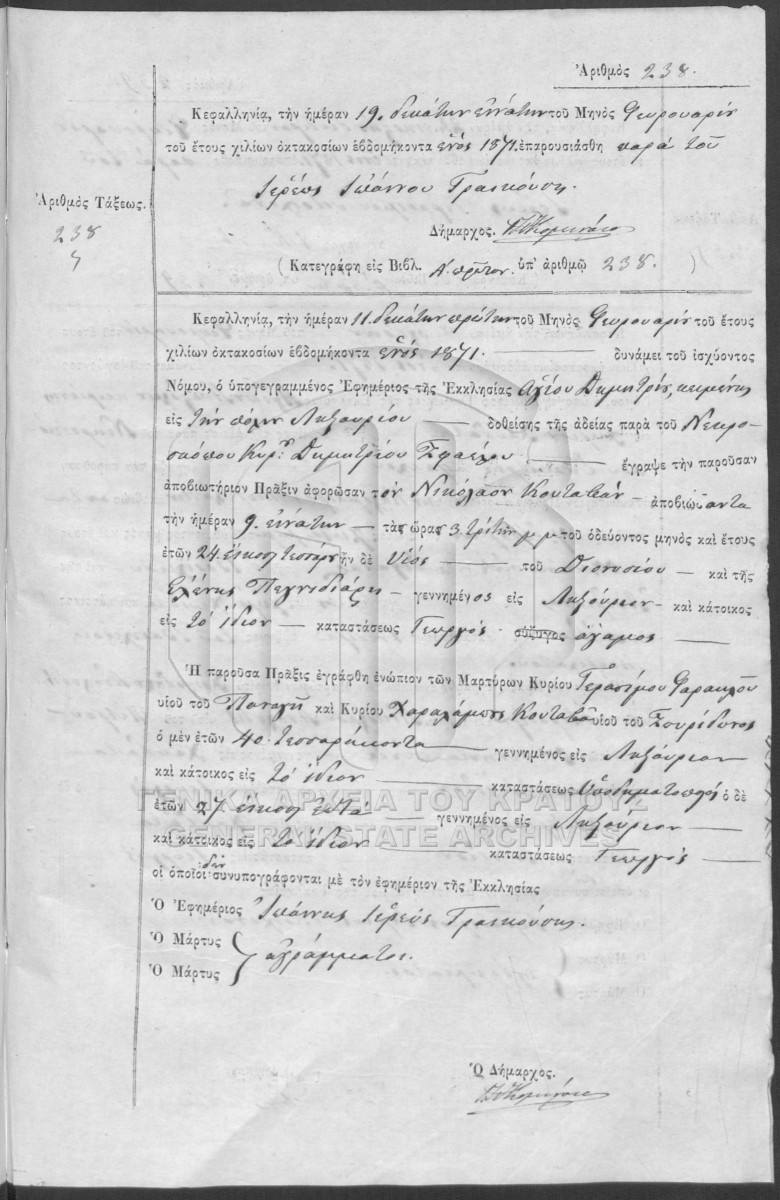 Ἀριθμὸς 238.
Κεφαλληνίᾳ, τὴν ἡμέραν 19. δεκάτην ἐννάτην τοῦ Μηνὸς Φευρουαρίου
τοῦ ἔτους χιλίων ὀκτακοσίων ἑβδομήκοντα ἑνὸς 1871. ἐπαρουσιάσθη παρὰ τοῦ
Ἱερέως Ἰωάννου
Ἀριθμὸς Τάξεως.
238
Δήμαρχος.
( Κατεγράφη εἰς Βιβλ. Α. πρῶτον. ὑπ' ἀριθμῷ 238. )
Κεφαλληνίᾳ, τὴν ἡμέραν 11. δεκάτην πρώτην τοῦ Μηνὸς Φευρουαρίου τοῦ ἔτους
χιλίων ὀκτακοσίων ἑβδομήκοντα ἑνὸς 1871. δυνάμει τοῦ ἰσχύοντος
Νόμου, ὁ ὑπογεγραμμένος Ἐφημέριος τῆς Ἐκκλησίας Ἁγίου Δημητρίου, κειμένης
εἰς τὴν πόλιν Ληξουρίου δοθείσης τῆς ἀδείας παρὰ τοῦ Νεκρο-
σκόπου Κυρ. Δημητρίου ἔγραψε τὴν παροῦσαν
ἀποβιωτήριον Πρᾶξιν ἀφορῶσαν τὸν Νικόλαον Κουταβᾶν ἀποβιώσαντα
τὴν ἡμέραν 9. ἐννάτην τὰς ὥρας 3. τρίτην μ μ τοῦ ὁδεύοντος μηνὸς καὶ ἔτους
ἐτῶν 24. εἴκοσι τεσσάρων ἦν δὲ υἱὸς τοῦ Διονυσίου καὶ τῆς
Ἑλένης γεννημένος εἰς Ληξούριον καὶ κάτοικος
εἰς τὸ ἴδιον καταστάσεως Γεωργὸς σύζυγος ἄγαμος
Ἡ παροῦσα Πρᾶξις ἐγράφθη ἐνώπιον τῶν Μαρτύρων Κυρίου Γερασίμου
υἱοῦ τοῦ Παναγῆ καὶ Κυρίου Χαραλάμπης Κουταβᾶ υἱοῦ τοῦ Σπυρίδωνος
ὁ μὲν ἐτῶν 40. τεσσαράκοντα γεννημένος εἰς Ληξούριον
καὶ κάτοικος εἰς τὸ ἴδιον καταστάσεως Ὑποδηματοποιὸς ὁ δὲ
ἐτῶν 27 εἴκοσι ἑπτὰ γεννημένος εἰς Ληξούριον
καὶ κάτοικος εἰς τὸ ἴδιον καταστάσεως Γεωργὸς
οἱ ὁποῖοι δὲν συνυπογράφονται μὲ τὸν ἐφημέριον τῆς Ἐκκλησίας
Ὁ Ἐφημέριος Ἰωάννης Ἱερεὺς
Ὁ Μάρτυς
ἀγράμματοι.
Ὁ Μάρτυς
Ὁ Δήμαρχος.
ΓΕΝΙΚΑ ΑΡΧΕΙΑ ΤΟΥ ΚΡΑΤΟΥΣ
GENERAL STATE ARCHIVES